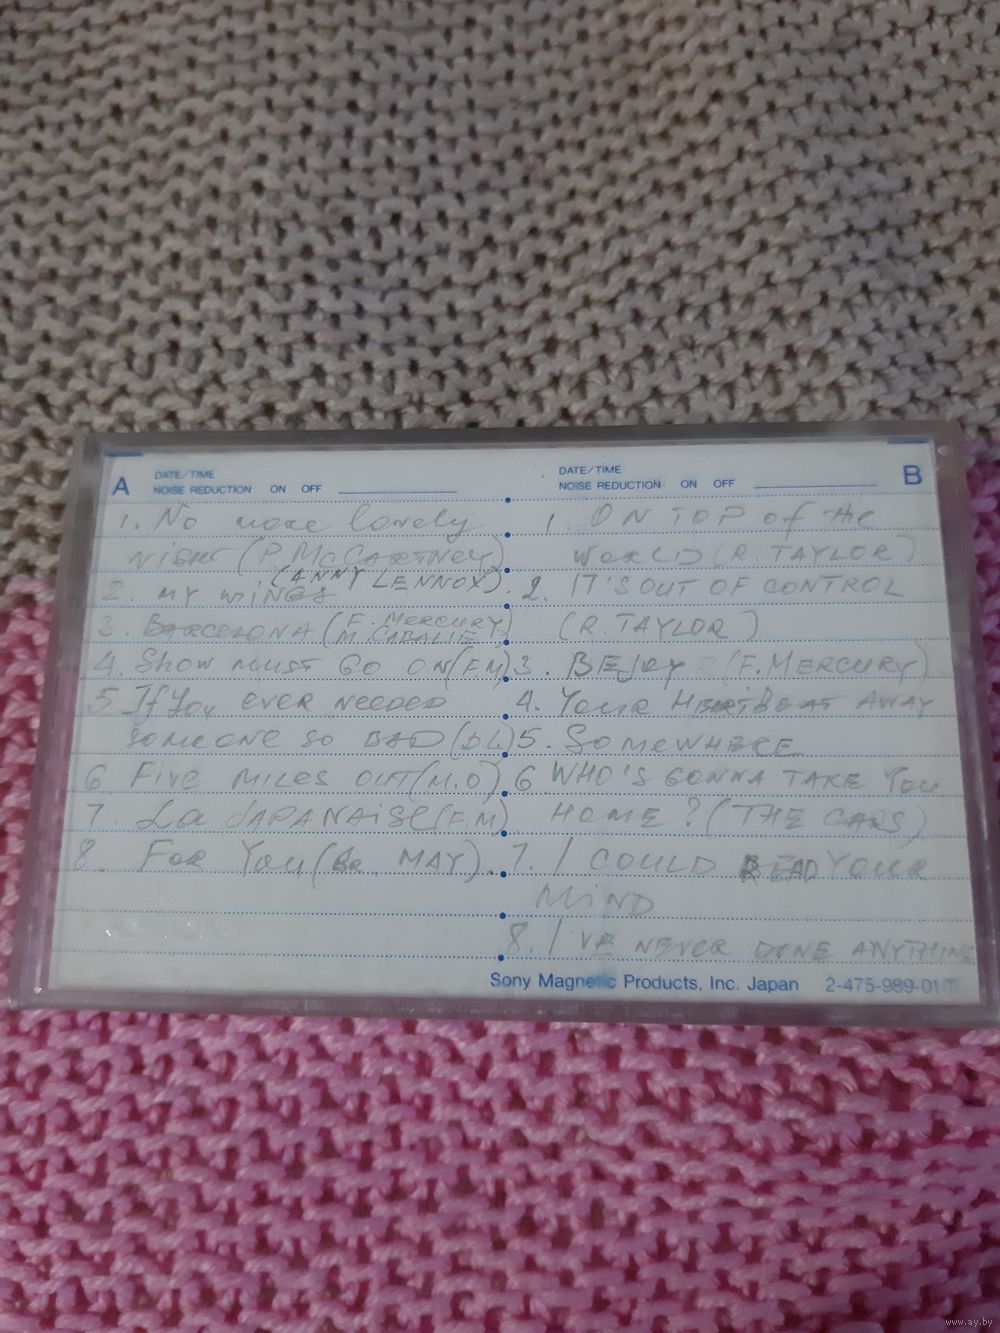 A
DATE/TIME
NOISE REDUCTION ON OFF
1. No more lonely
night (P. McCARTNEY)
2. MY WINGS (ANNY LENNOX).
3. BARCELONA (F. MERCURY
M. CABALIE)
4. Show must GO ON (F.M)
5 If you ever needed
someone so BAD (D.L)
6 Five MILES OUT (M.O)
7. La JAPANAISE (F.M)
8. For You (Br. MAY).
B
DATE/TIME
NOISE REDUCTION ON OFF
1 ON TOP of the
WORLD (R. TAYLOR)
2. IT'S OUT OF CONTROL
(R. TAYLOR)
3. (F. MERCURY)
4. Your HEARTBEAT AWAY
5. SOMEWHERE
6 WHO'S GONNA TAKE You
HOME? (THE CARS)
7. I COULD READ YOUR
MIND
8. I VE NEVER DONE ANYTHING
Sony Magnetic Products, Inc. Japan 2-475-989-01
www.ay.by